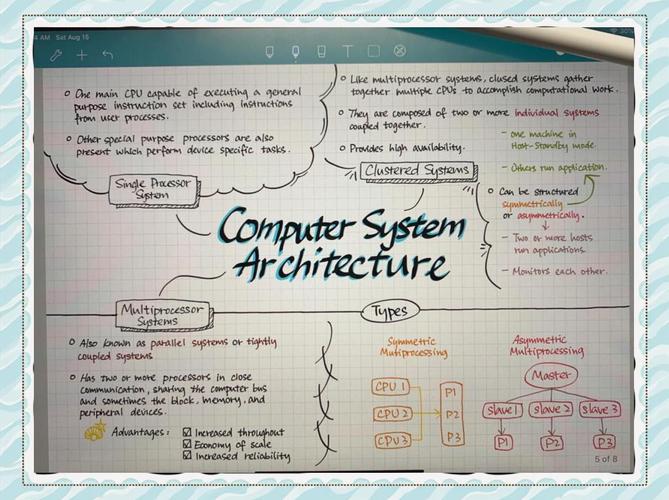 AM Sat Aug 15
30%
One main CPU capable of executing a general
purpose instruction set including instructions
from user processes.
Other special purpose processors are also
present which perform device specific tasks.
Single Processor
System
Like multiprocessor systems, clused systems gather
together multiple CPUs to accomplish computational work.
They are composed of two or more individual systems
coupled together.
Provides high availability.
Clustered Systems
- one machine in
Host-Standby mode.
- Others run application.
Can be structured
symmetrically
or asymmetrically.
- Two or more hosts
run applications.
- Monitors each other.
Computer System
Architecture
Multiprocessor
Systems
Types
Also known as parallel systems or tightly
coupled systems
Has two or more processors in close
communication, sharing the computer bus
and sometimes the block, memory, and
peripheral devices.
Advantages:
Increased throughout
Economy of scale
Increased reliability
Symmetric
Mutiprocessing
CPU 1
CPU 2
CPU 3
P1
P2
P3
Asymmetric
Multiprocessing
Master
slave 1
slave 2
slave 3
P1
P2
P3
5 of 8